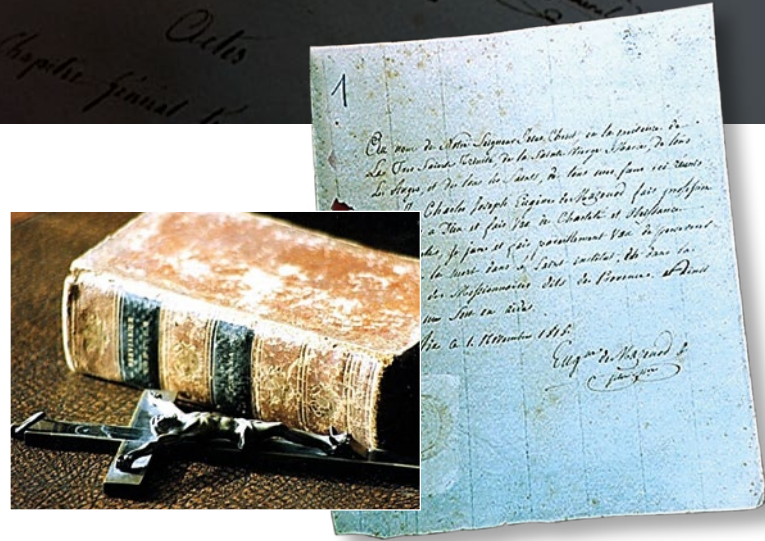 Actes
Chapitre Général
1
Au nom de Notre Seigneur Jesus Christ en la presence de
La Très Sainte Trinité de la Sainte Vierge Marie, de tous
Les Anges et de tous les Saints, de tous mes frères ici réunis
Charles Joseph Eugène de Mazenod fais profession
à Dieu et fais Vœu de Chasteté et Obéissance
je jure et fais pareillement Vœu de
la mort dans ce Saint institut, dans la
des Missionnaires dits de Provence. ainsi
Dieu Soit en aide.
le 1. Novembre 1818.
Eug. de Mazenod